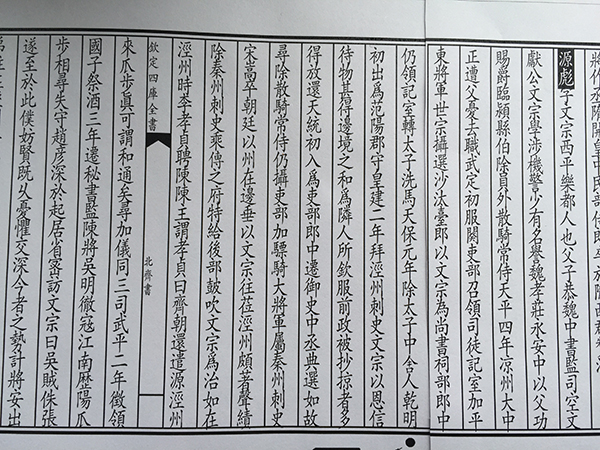 源彪字文宗西平樂都人也父子恭魏中書監司空文
獻公文宗學涉機警少有名譽魏孝莊永安中以父功
賜爵臨潁縣伯除員外散騎常侍天平四年涼州大中
正遭父憂去職武定初服闋吏部召領司徒記室加平
東將軍世宗攝選沙汰臺郎以文宗為尚書祠部郎中
仍領記室轉太子洗馬天保元年除太子中舍人乾明
初出為范陽郡守皇建二年拜涇州刺史文宗以恩信
待物甚得邊境之和為隣人所欽服前政被抄掠者多
得放還天統初入為吏部郎中遷御史中丞典選如故
尋除散騎常侍仍攝吏部加驃騎大將軍屬秦州刺史
宋嵩卒朝廷以州在邊垂以文宗往莅涇州頗著聲績
除秦州刺史乘傳之府特給後部鼓吹文宗為治如在
涇州時李孝貞聘陳陳王謂孝貞曰齊朝還遣源涇州
欽定四庫全書
北齊書
來瓜步真可謂和通矣尋加儀同三司武平二年徵領
國子祭酒三年遷秘書監陳將吳明徹寇江南歷陽瓜
步相尋失守趙彥深於起居省密訪文宗曰吳賊侏張
遂至於此僕妨賢既久憂懼交深今者之勢計將安出